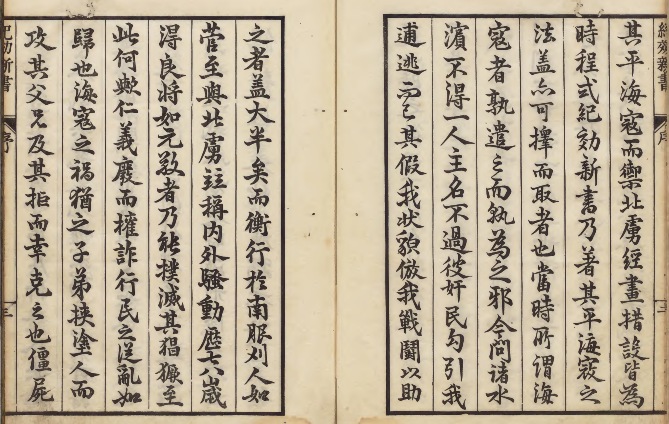 其平海寇而禦北虜經畫措設皆為
時程式紀効新書乃著其平海寇之
法盖亦可擇而取者也當時所謂海
寇者孰遣之而孰為之邪今問諸水
濱不得一人主名不過彼奸民勾引我
逋逃而已其假我狀貌倣我戰鬪以助
之者盖大半矣而衡行於南服刈人如
菅至與北虜竝稱内外騷動歴七八歳
得良将如元敬者乃能撲滅其猖獗至
此何歟仁義廢而權詐行民之従亂如
歸也海寇之禍猶之子弟挟塗人而
攻其父兄及其拒而幸克之也僵屍
序
三